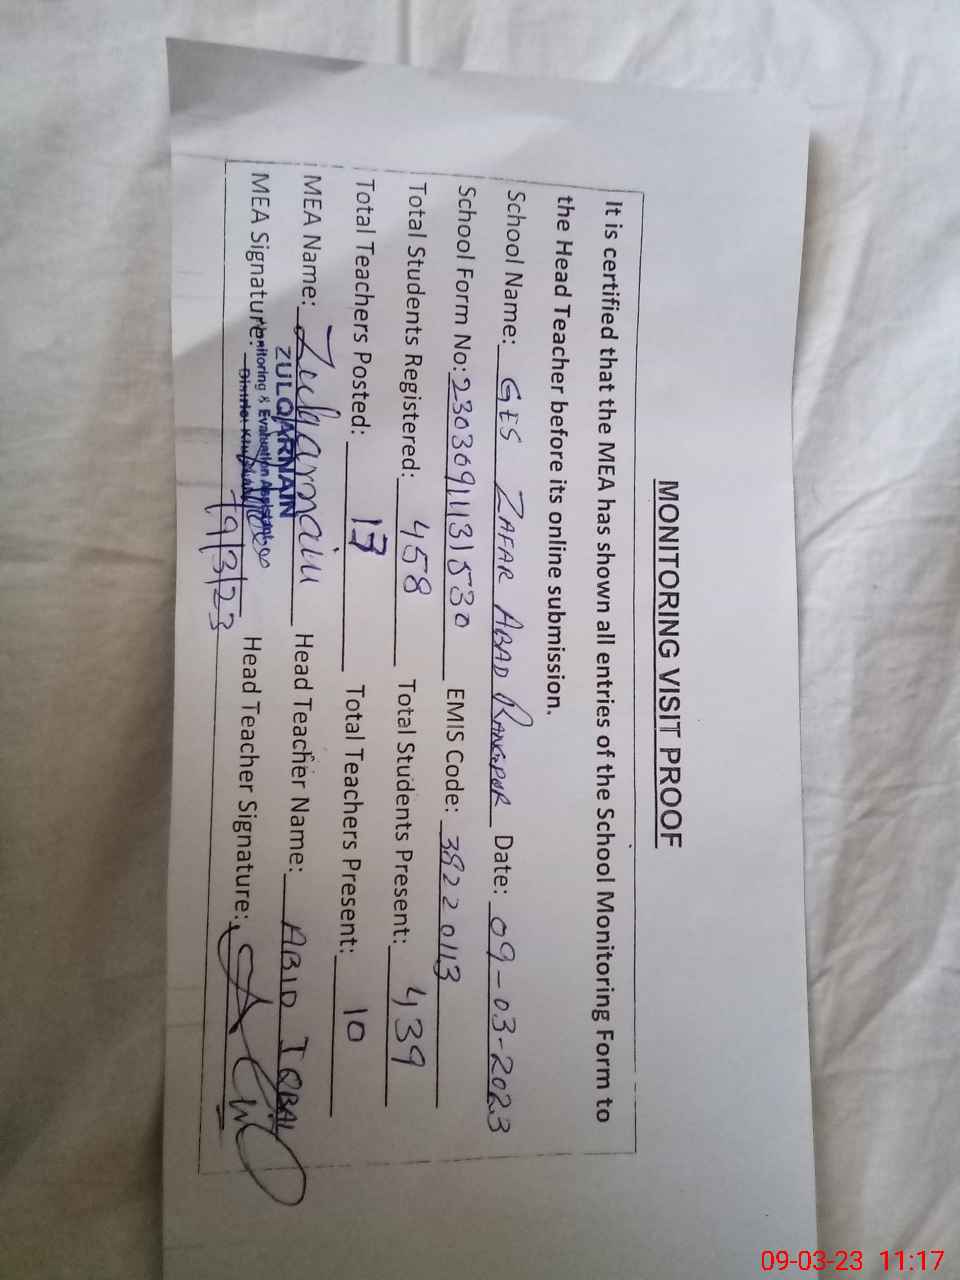 MONITORING VISIT PROOF
It is certified that the MEA has shown all entries of the School Monitoring Form to
the Head Teacher before its online submission.
School Name: GES ZAFAR ABAD RANGPUR Date: 09-03-2023
School Form No: 23030911131530 EMIS Code: 38220113
Total Students Registered: 458 Total Students Present: 439
Total Teachers Posted: 13 Total Teachers Present: 10
MEA Name: Zulqarnain Head Teacher Name: ABID IQBAL
ZULQARNAIN
Monitoring & Evaluation Assistant
MEA Signature: Head Teacher Signature:
District
9/3/23
09-03-23 11:17